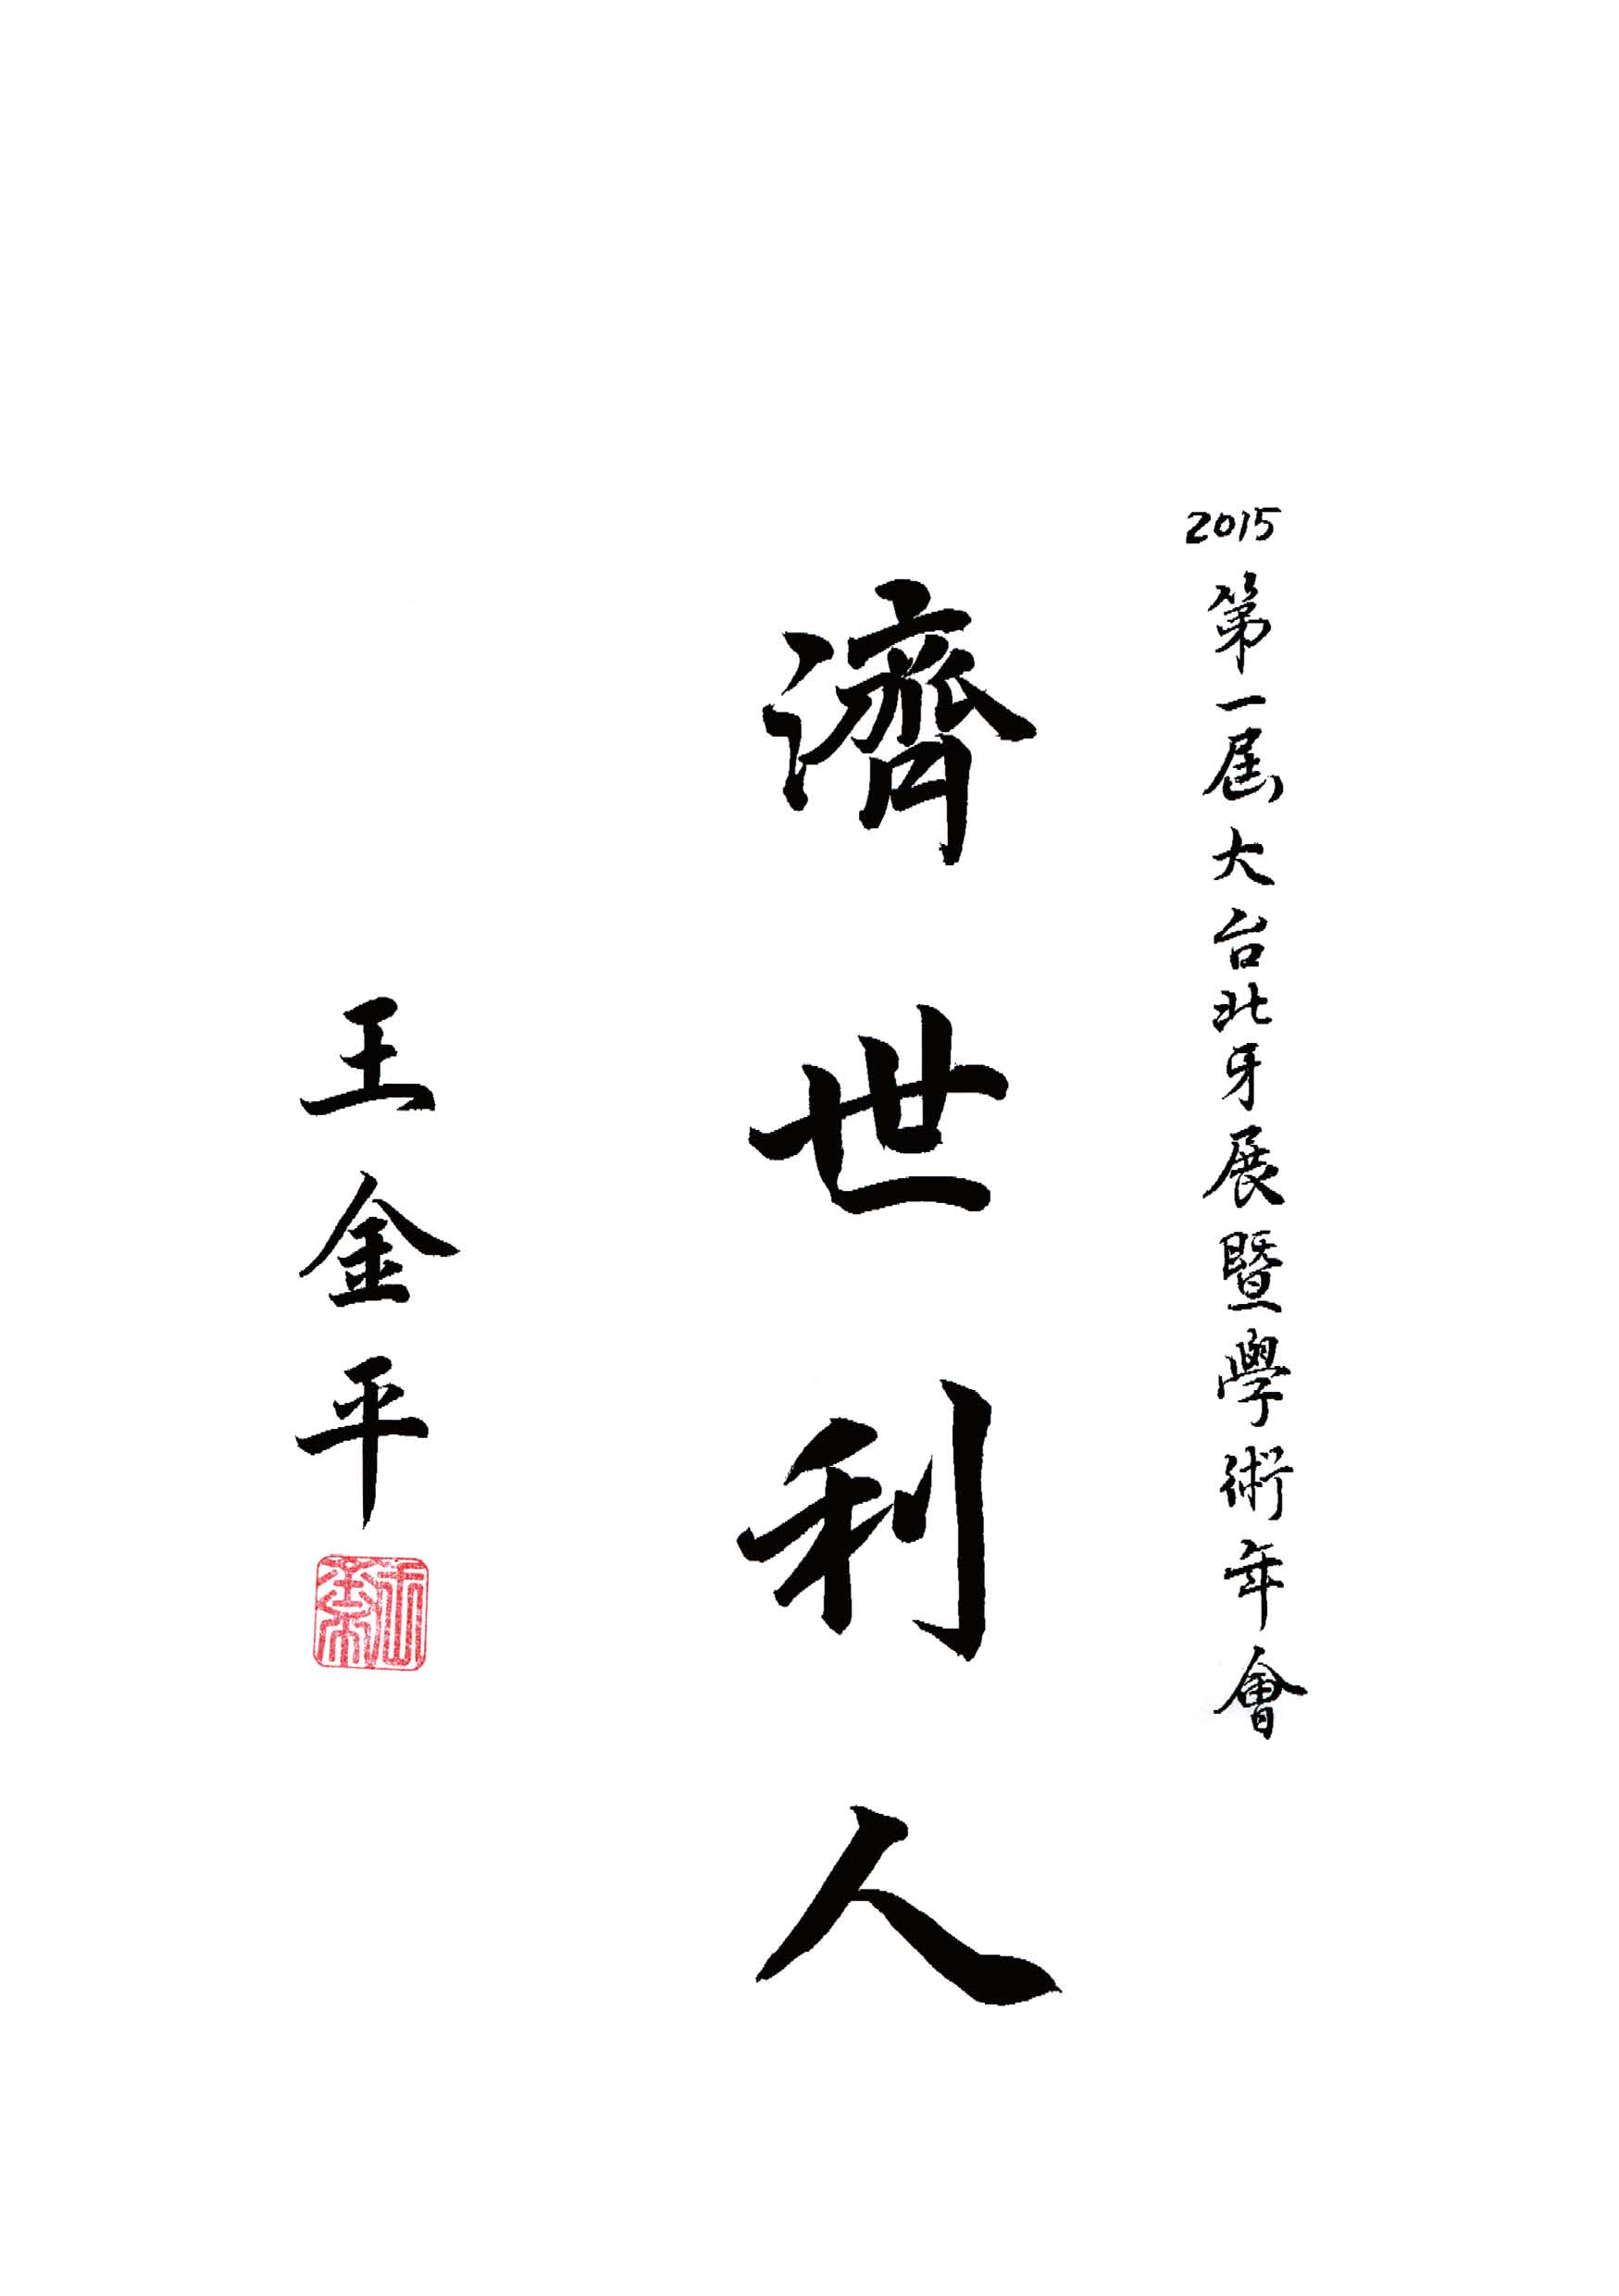 2015第一屆大台北牙展暨學術年會
濟世利人
王金平